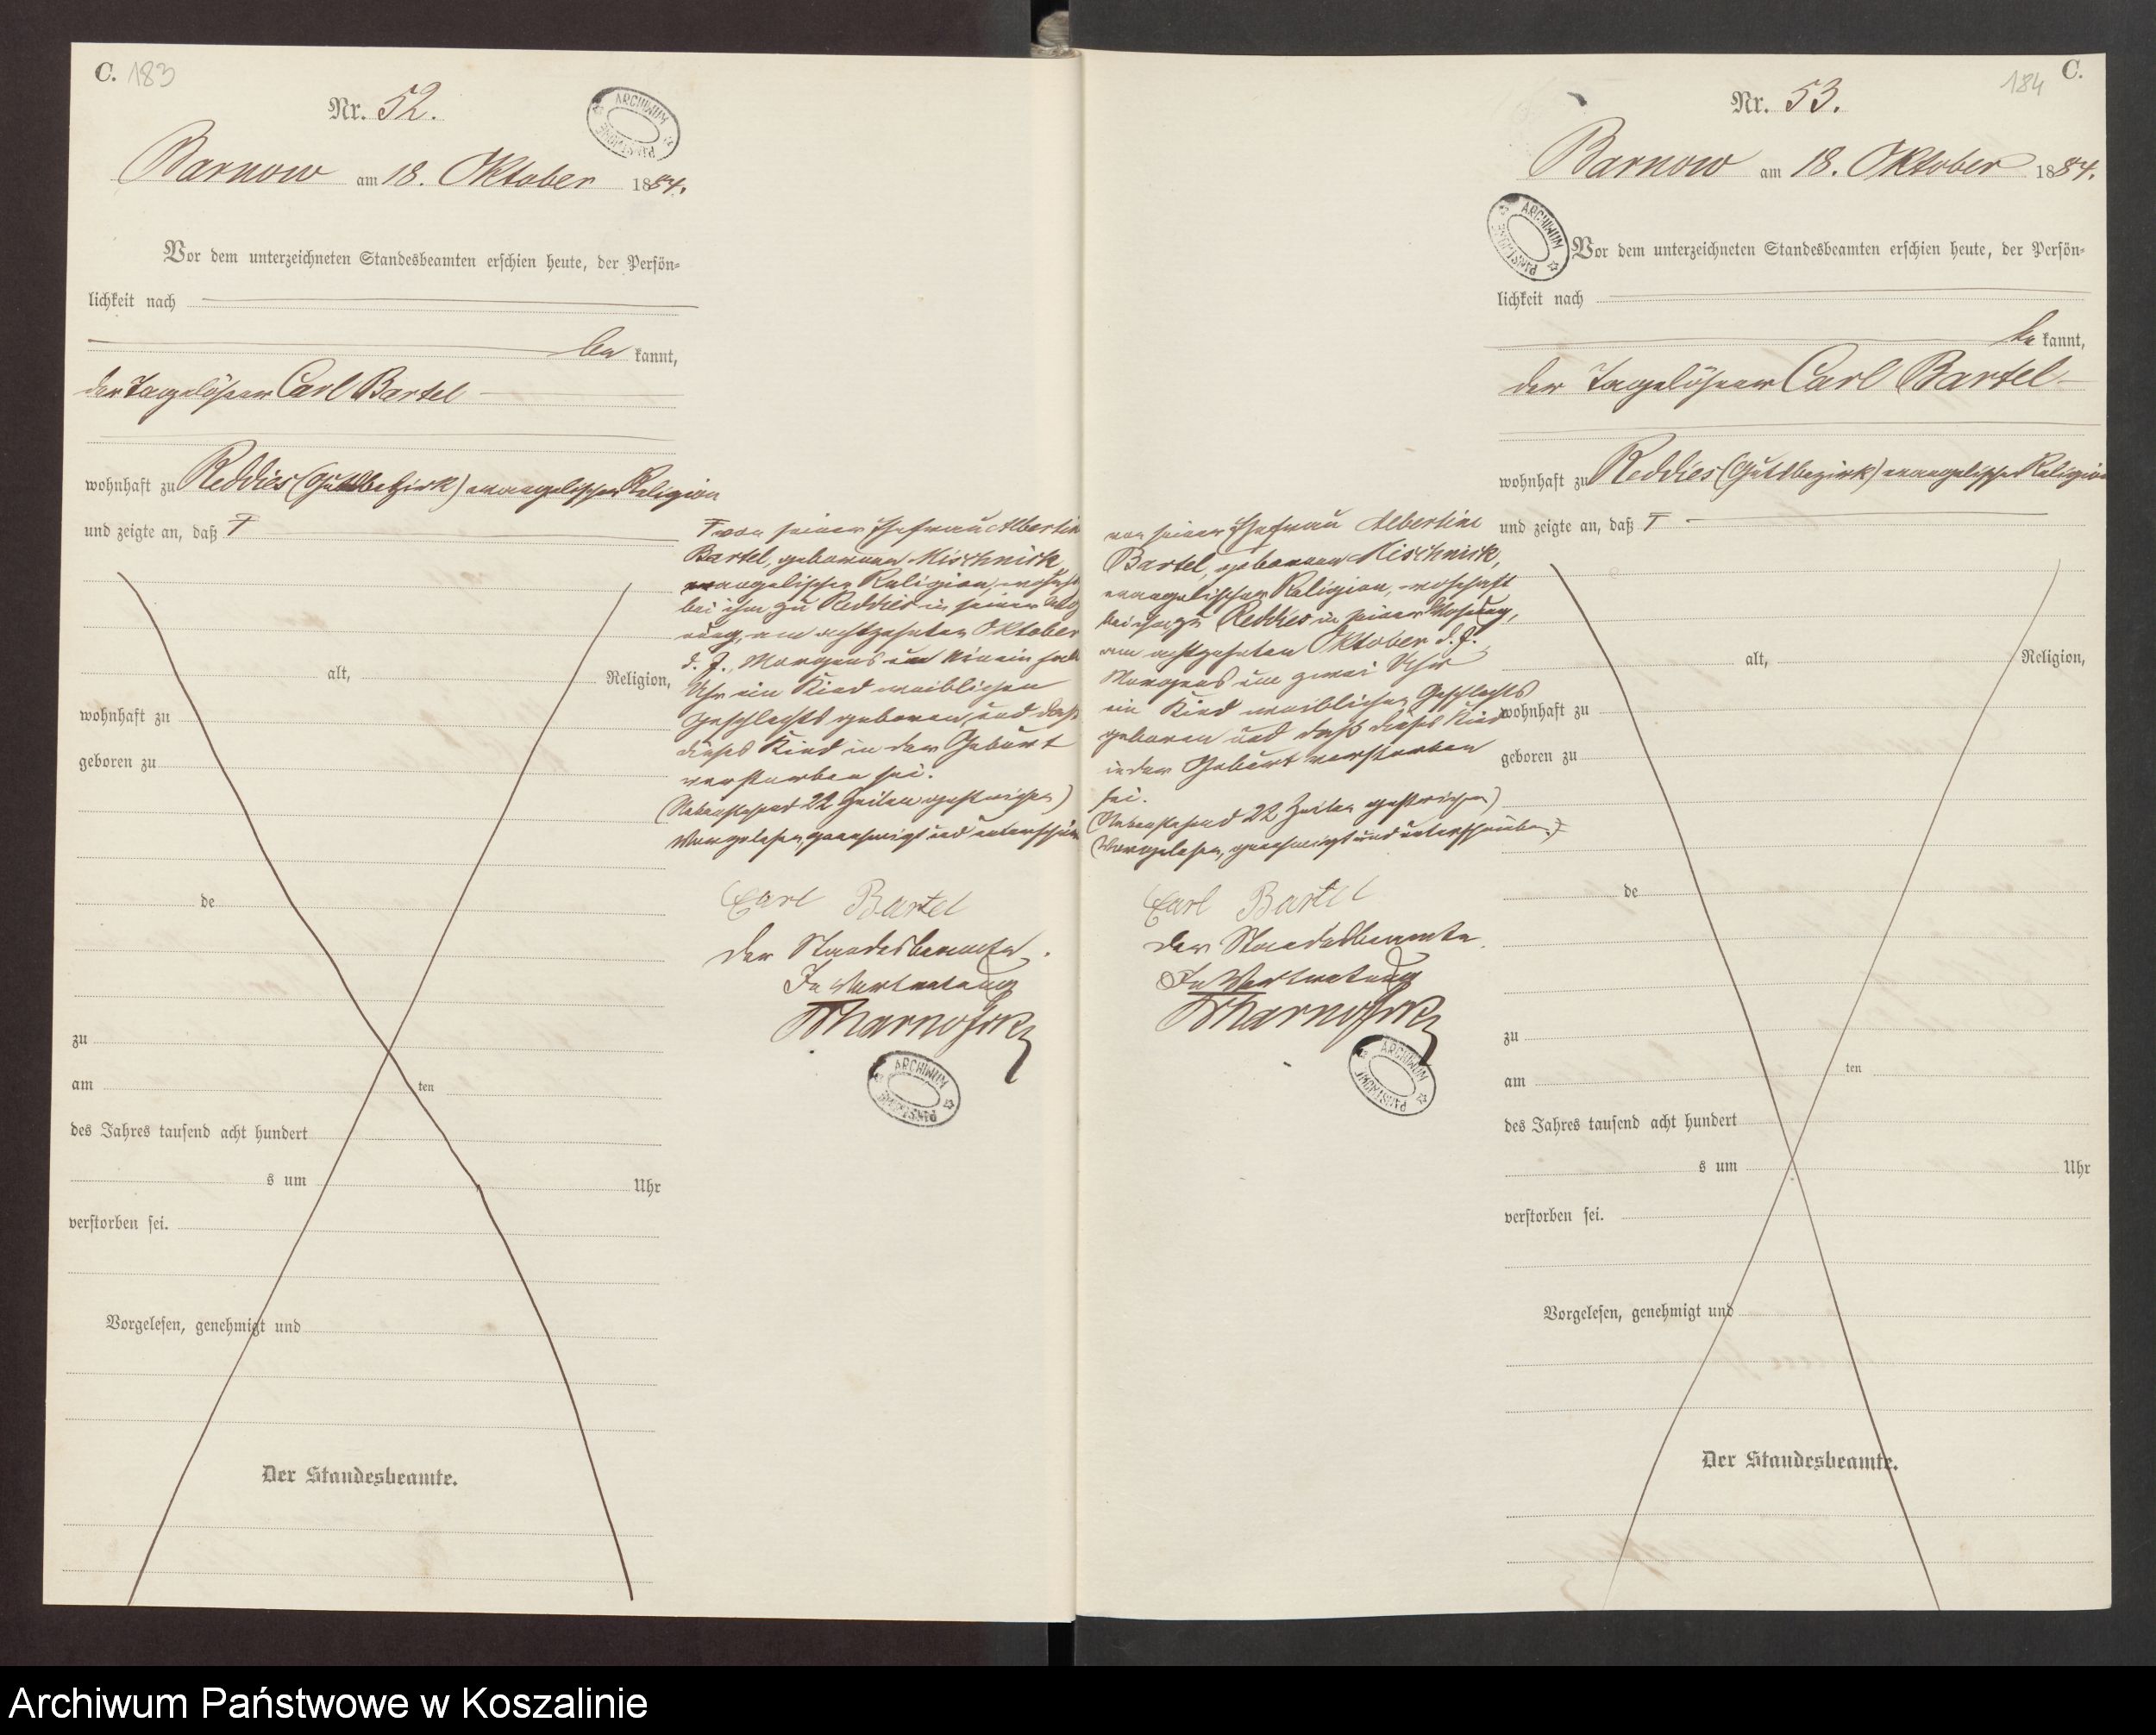 C. 183
Nr. 52.
ARCHIWUM PAŃSTWOWE
Barnow am 18. Oktober 1884.
Vor dem unterzeichneten Standesbeamten erschien heute, der Persön-
lichkeit nach
be kannt,
der Tagelöhner Carl Bartel
wohnhaft zu Reddies (Gutsbezirk) evangelischer Religion
und zeigte an, daß
von seiner Ehefrau Albertine
Bartel, geborenen Mischnick,
evangelischer Religion, wohnhaft
bei ihm zu Reddies in seiner Woh
nung, am achtzehnten Oktober
d. J., Morgens um ein halb
Uhr ein Kind weiblichen
Geschlechts geboren, und daß
dieses Kind in der Geburt
verstorben sei.
(Nebenstehend 22 Zeilen gestrichen)
Vorgelesen, genehmigt und unterschrieben
Carl Bartel
Der Standesbeamte.
In Vertretung
ARCHIWUM PAŃSTWOWE
alt,
Religion,
wohnhaft zu
geboren zu
de
zu
am ten
des Jahres tausend acht hundert
s um Uhr
verstorben sei.
Vorgelesen, genehmigt und
Der Standesbeamte.
184 C.
Nr. 53.
Barnow am 18. Oktober 1884.
ARCHIWUM PAŃSTWOWE
Vor dem unterzeichneten Standesbeamten erschien heute, der Persön-
lichkeit nach
be kannt,
der Tagelöhner Carl Bartel
wohnhaft zu Reddies (Gutsbezirk) evangelischer Religion
und zeigte an, daß
von seiner Ehefrau Albertine
Bartel, geborenen Mischnick,
evangelischer Religion, wohnhaft
bei ihm zu Reddies in seiner Wohnung,
am achtzehnten Oktober d. J.,
Morgens um zwei Uhr
ein Kind weiblichen Geschlechts
geboren und daß dieses Kind
in der Geburt verstorben
sei.
(Nebenstehend 22 Zeilen gestrichen)
(Vorgelesen, genehmigt und unterschrieben.)
Carl Bartel
Der Standesbeamte.
In Vertretung
ARCHIWUM PAŃSTWOWE
alt,
Religion,
wohnhaft zu
geboren zu
de
zu
am ten
des Jahres tausend acht hundert
s um Uhr
verstorben sei.
Vorgelesen, genehmigt und
Der Standesbeamte.
Archiwum Państwowe w Koszalinie